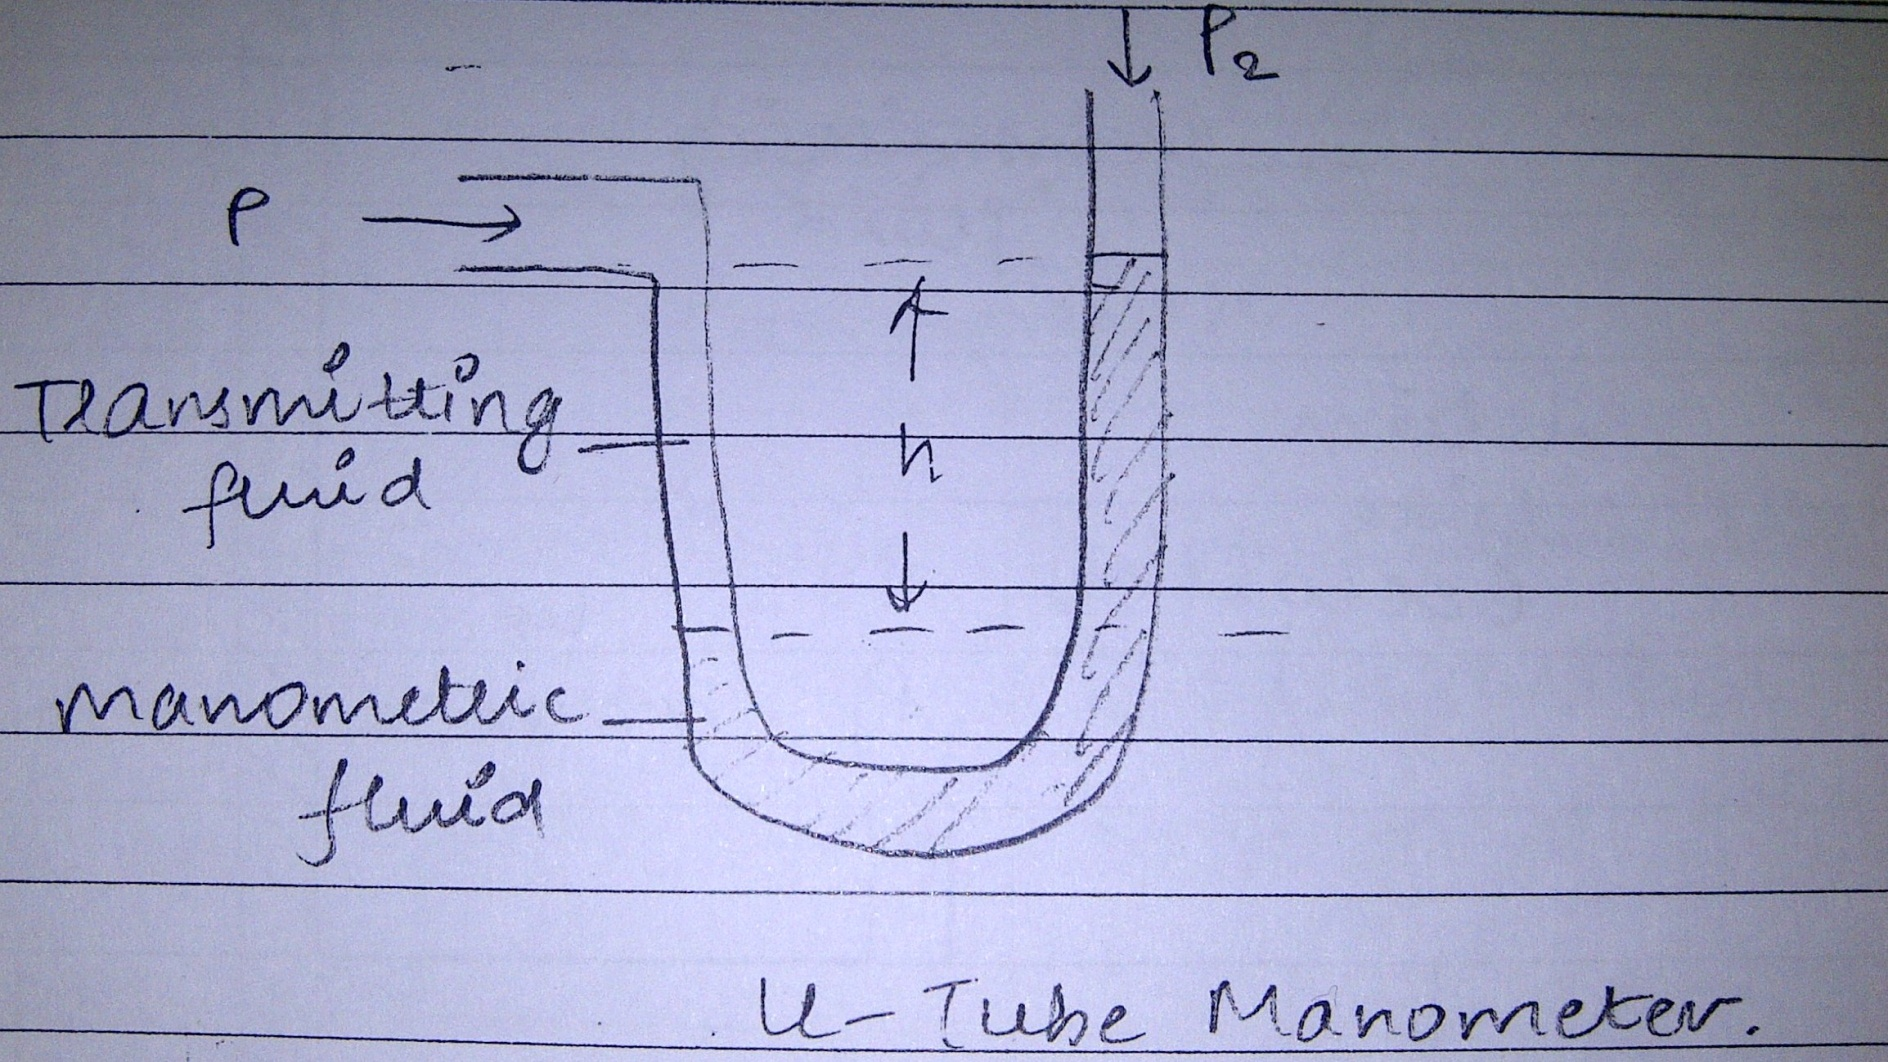 P2
P
Transmitting
fluid
h
manometric
fluid
U-Tube Manometer.